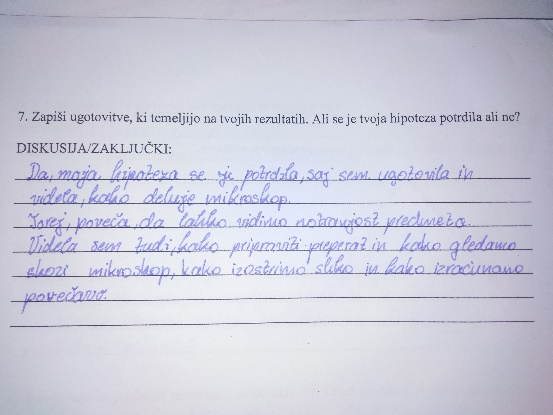 7. Zapiši ugotovitve, ki temeljijo na tvojih rezultatih. Ali se je tvoja hipoteza potrdila ali ne?
DISKUSIJA/ZAKLJUČKI:
Da, moja hipoteza se je potrdila, saj sem ugotovila in
videla, kako deluje mikroskop.
Torej, poveča, da lahko vidimo notranjost predmeta.
Videla sem tudi, kako pripraviti preparat in kako gledamo
skozi mikroskop, kako izostrimo sliko in kako izračunamo
povečavo.